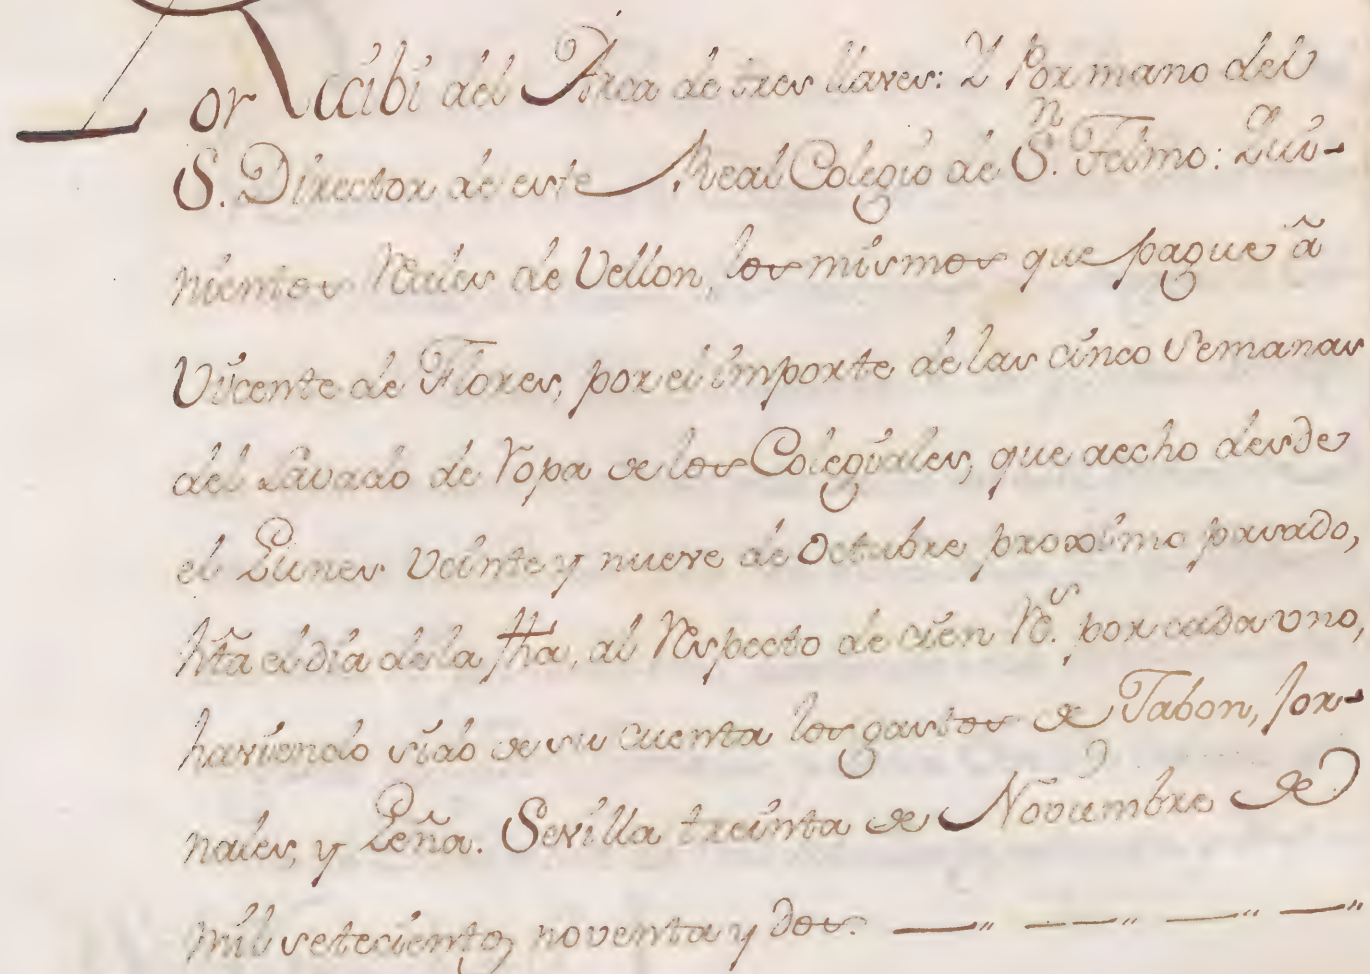 Recibi del Arca de tres llaves: Y Por mano del
S.or Director de este Real Colegio de S.n Telmo: Qui-
nientos Reales de Vellon, los mismos que pague â
Vicente de Flores, por el importe de las cinco Semanas
del Lavado de Ropa de los Colegiales, que aecho desde
el Lunes Veinte y nueve de Octubre proximo pasado,
hta el dia de la fha, al Respecto de cien R.s por cada vno,
haviendo sido de su cuenta los gastos de Jabon, Jor-
nales, y Leña. Sevilla treinta de Noviembre de
mil setecientos, noventa y dos.